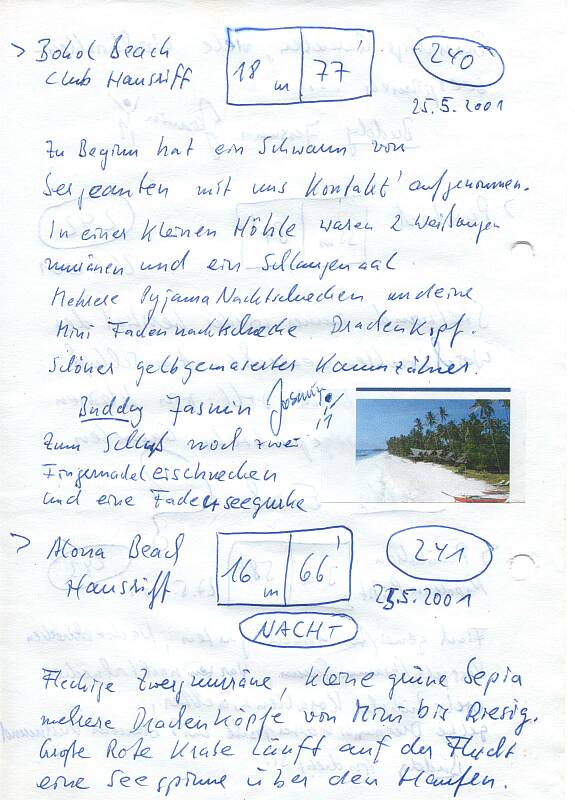 > Bohol Beach
Club Hausriff
18 m 77'
240
25.5.2001
Zu Beginn hat ein Schwarm von
Sergeanten mit uns Kontakt aufgenommen.
In einer kleinen Höhle waren 2 Weißaugen
muränen und ein Schlangenaal.
Mehrere Pyjama Nachtschnecken und eine
Mini Fadennachtschnecke. Drachenkopf.
Schöner gelbgemaserter Kammzähner.
Buddy Jasmin
Zum Schluß noch zwei
Fingernadel eischnecken
und eine Fadenseegurke
> Alona Beach
Hausriff
16 m 66'
241
25.5.2001
NACHT
Fleckige Zwergmuräne, kleine grüne Sepia
mehrere Drachenköpfe von Mini bis Riesig.
Große Rote Krabe läuft auf der Flucht
eine Seespinne über den Haufen.